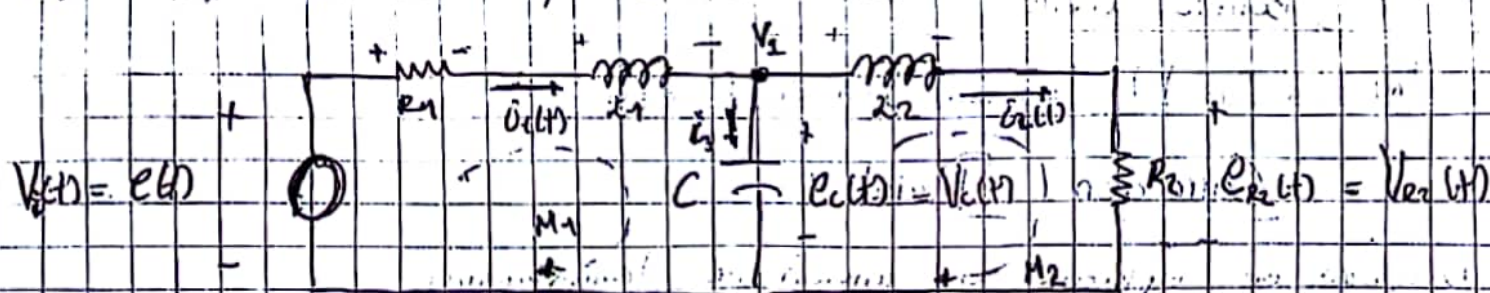 + - + - V1 + -
R1 i1(t) L1 i3 L2 i2(t)
+ + +
Vi(t) = e(t) C ec(t) = Vc(t) R2 eR2(t) = VR2(t)
- - -
M1 M2
+ +